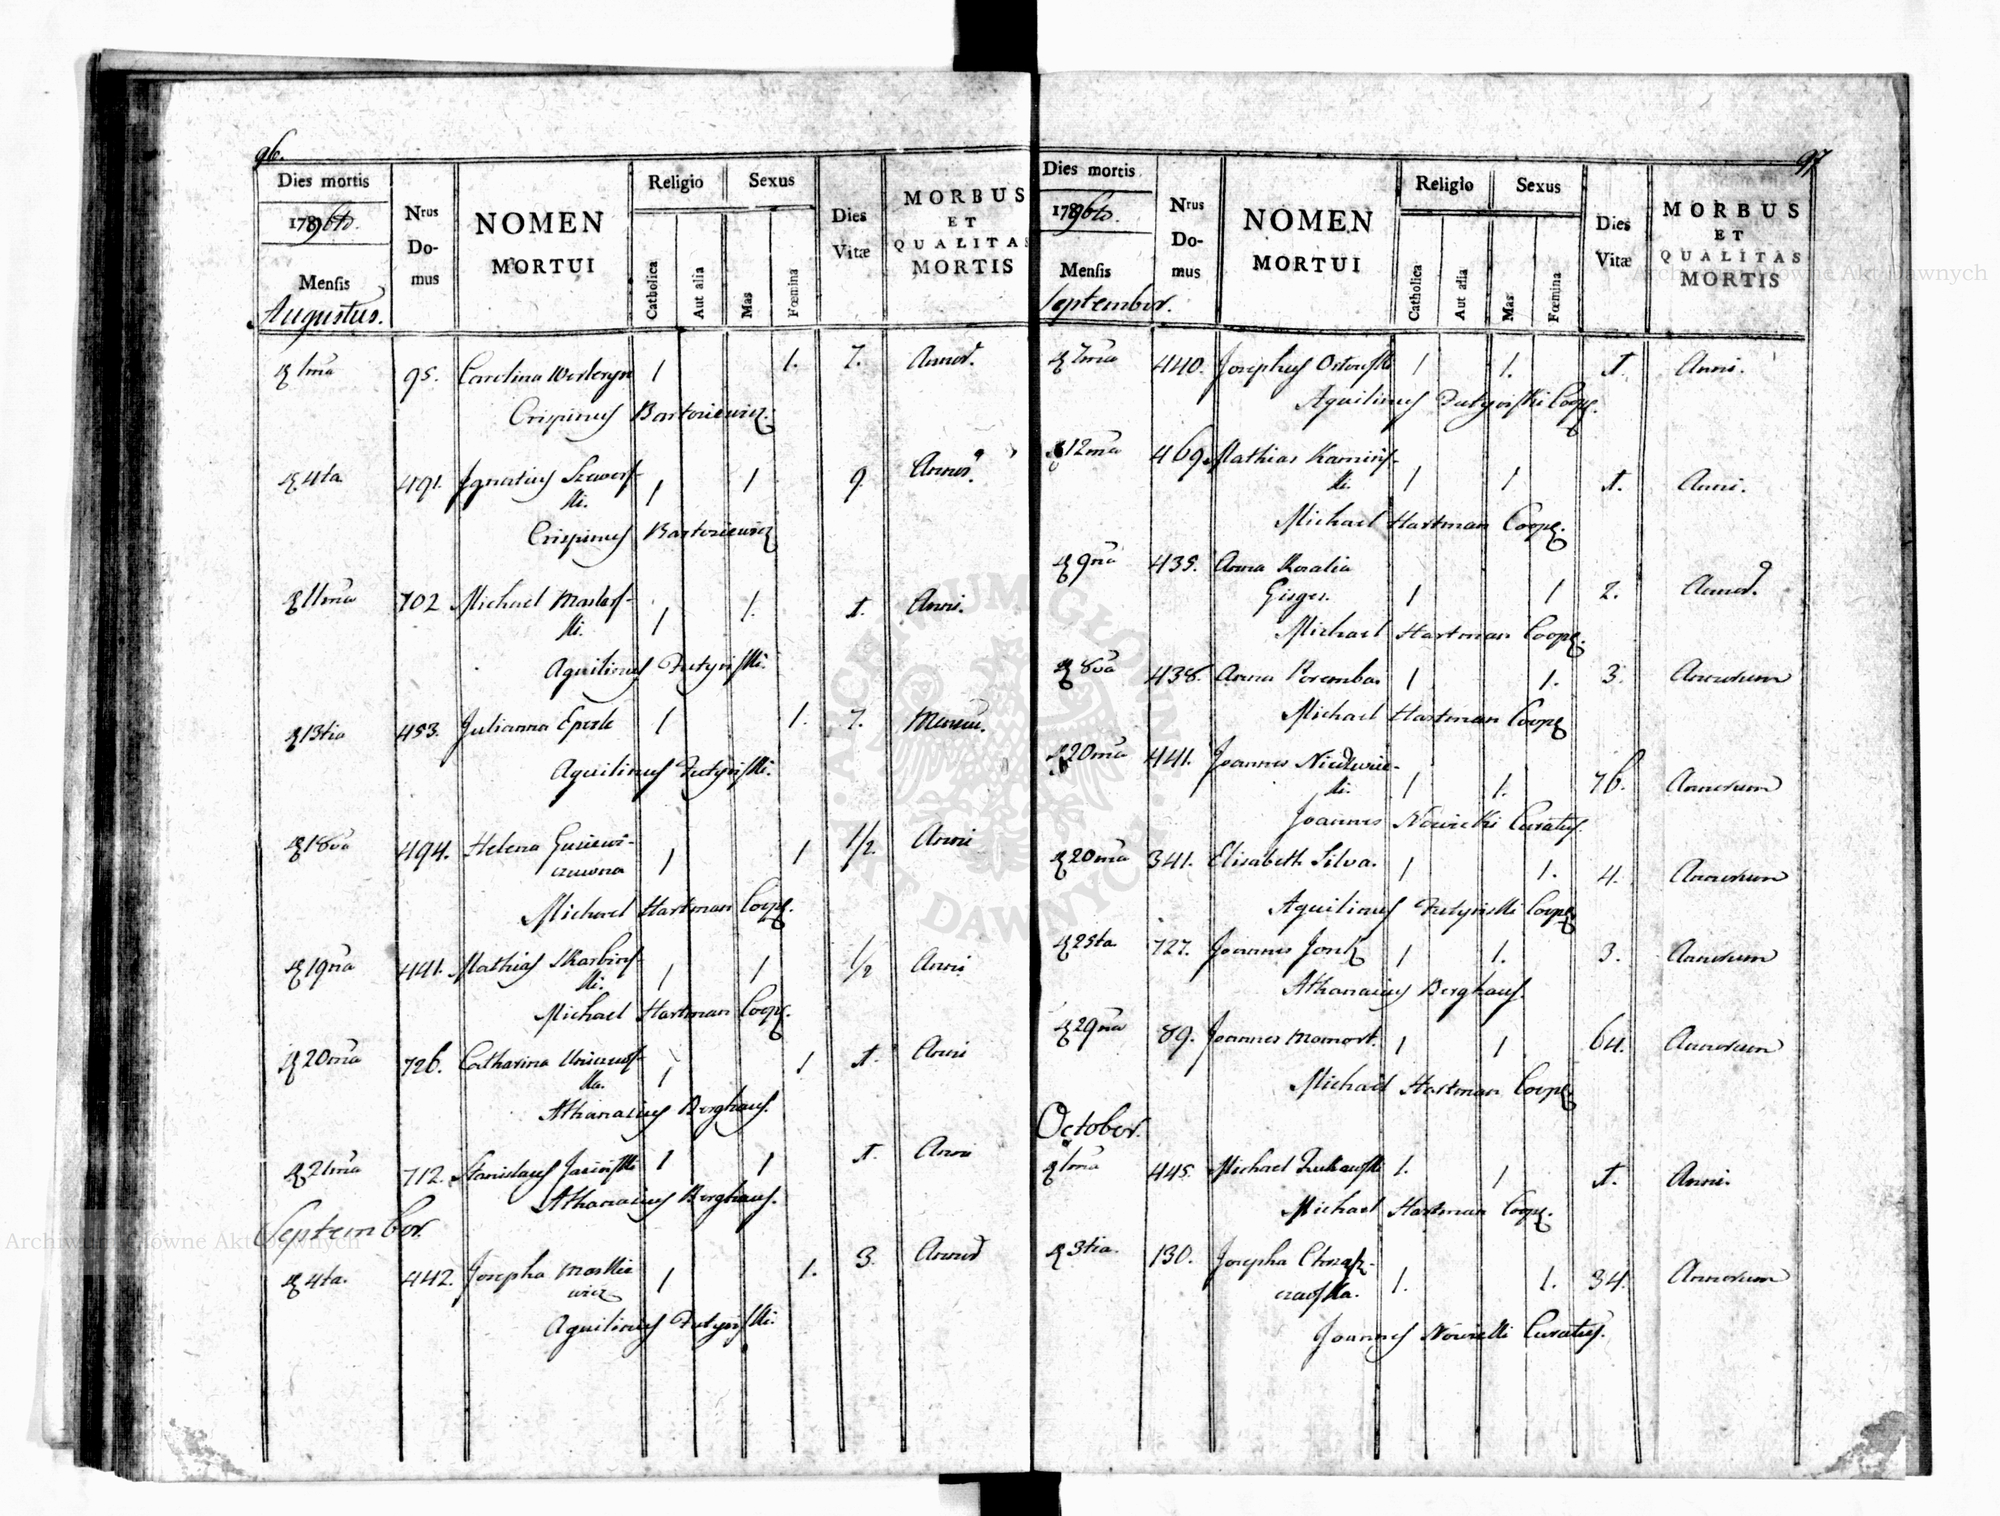 96.
Dies mortis
1796to.
Mensis
Augustus.
Nrus Domus
NOMEN MORTUI
Religio
Catholica
Aut alia
Sexus
Mas
Fœmina
Dies Vitæ
MORBUS ET QUALITAS MORTIS
1ma 95. Carolina 1 1. 7. Annor.
Crispinus Bartoziewicz.
4ta 491. Ignatius Szwers-
ki. 1 1 9 Annor.
Crispinus Bartoziewicz
11ma 702 Michael Maslos-
ki. 1 1. 1. Anni.
Aquilinus Futyński.
13tia 453. Julianna Eperle 1 1. 7. Mensiu.
Aquilinus Futyński.
18va 494. Helena Gusiewi-
czowna 1 1 1/2. Anni
Michael Hartman Coop.
19na 441. Mathias Skarbins-
ki. 1 1 1/2 Anni
Michael Hartman Coop.
20ma 726. Catharina
ka. 1 1 1. Anni
Athanasius Berghaus.
21ma 712. Stanislaus Jasiński 1 1 1. Anni
Athanasius Berghaus.
September.
4ta. 442. Josepha Maskie
wicz 1 1. 3. Annor
Aquilinus Futyński.
97
Dies mortis
1796to.
Mensis
September.
Nrus Domus
NOMEN MORTUI
Religio
Catholica
Aut alia
Sexus
Mas
Fœmina
Dies Vitæ
MORBUS ET QUALITAS MORTIS
7ma 440. Josephus Ostowski 1 1. 1. Anni.
Aquilinus Futyński Coop.
12ma 469. Mathias Kamińs-
ki. 1 1 1. Anni.
Michael Hartman Coop.
9na 435. Anna Rosalia
Gisges. 1 1 2. Annor.
Michael Hartman Coop.
8va 438. Anna Poremba 1 1. 3. Annorum
Michael Hartman Coop
20ma 441. Joannes Niedzwie-
ki. 1 1. 76. Annorum
Joannes Nowicki Curatus.
20ma 341. Elisabeth Silva. 1 1. 4. Annorum
Aquilinus Futyński Coop.
25ta 727. Joannes Jonk 1 1. 3. Annorum
Athanasius Berghaus.
29na 89. Joannes Mamort. 1 1 64. Annorum
Michael Hartman Coop.
October.
1ma 445. Michael Żukawski 1. 1 1. Anni.
Michael Hartman Coop.
3tia. 130. Josepha
czawska. 1. 1. 34. Annorum
Joannes Nowicki Curatus.
Archiwum Główne Akt Dawnych
Archiwum Główne Akt Dawnych
ARCHIWUM GŁÓWNE AKT DAWNYCH